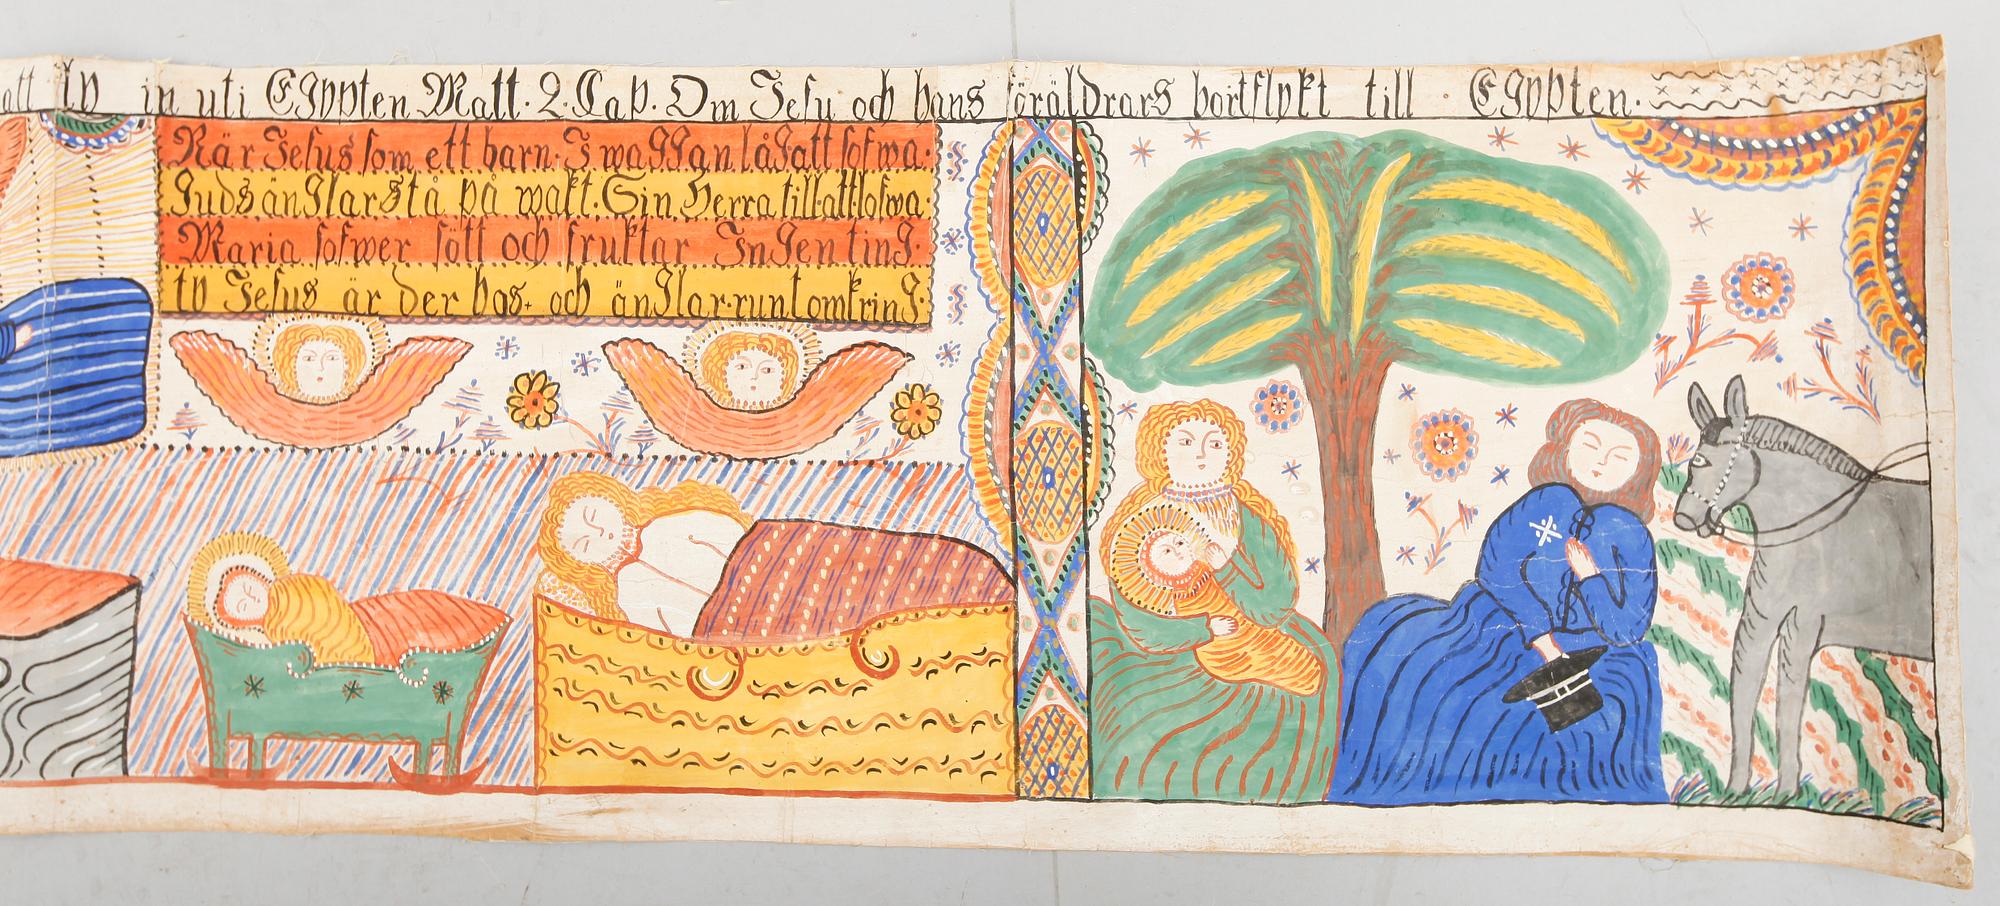 att fly in uti EGypten Matt. 2. Cap. Om Jesu och hans föräldrars bortflykt till EGypten.
När Jesus som ett barn. I waGGan låG att sofwa.
Guds änGlar stå på wakt. Sin Herra till. att. lofwa.
Maria sofwer sött och fruktar InGen tinG.
ty Jesus är der hos. och änGlar. runt omkrinG.